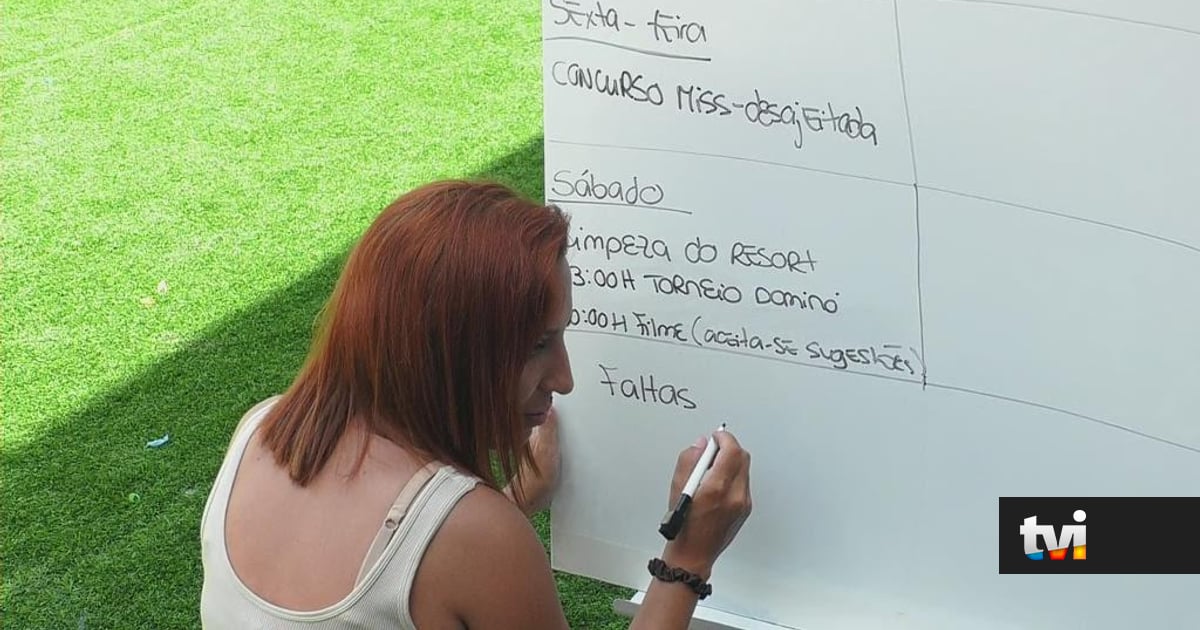 Sexta-feira
CONCURSO Miss-desajeitada
Sábado
Limpeza do RESORT
3:00H TORNEIO DOMINÓ
0:00H Filme (aceita-se sugestões)
Faltas
tvi